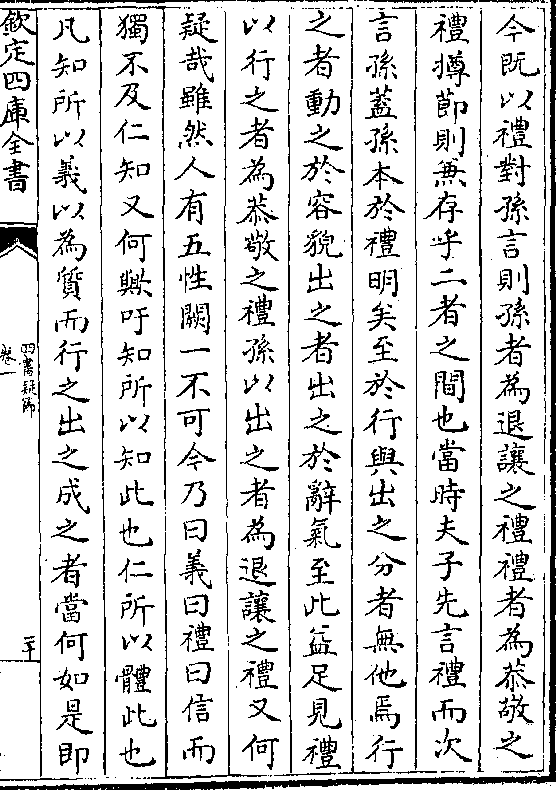 今既以禮對孫言則孫者為退讓之禮禮者為恭敬之
禮撙節則兼存乎二者之間也當時夫子先言禮而次
言孫蓋孫本於禮明矣至於行與出之分者無他焉行
之者動之於容貌出之者出之於辭氣至此益足見禮
以行之者為恭敬之禮孫以出之者為退讓之禮又何
疑哉雖然人有五性闕一不可今乃曰義曰禮曰信而
獨不及仁知又何歟吁知所以知此也仁所以體此也
凡知所以義以為質而行之出之成之者當何如是即
欽定四庫全書
四書疑節
卷一
二十